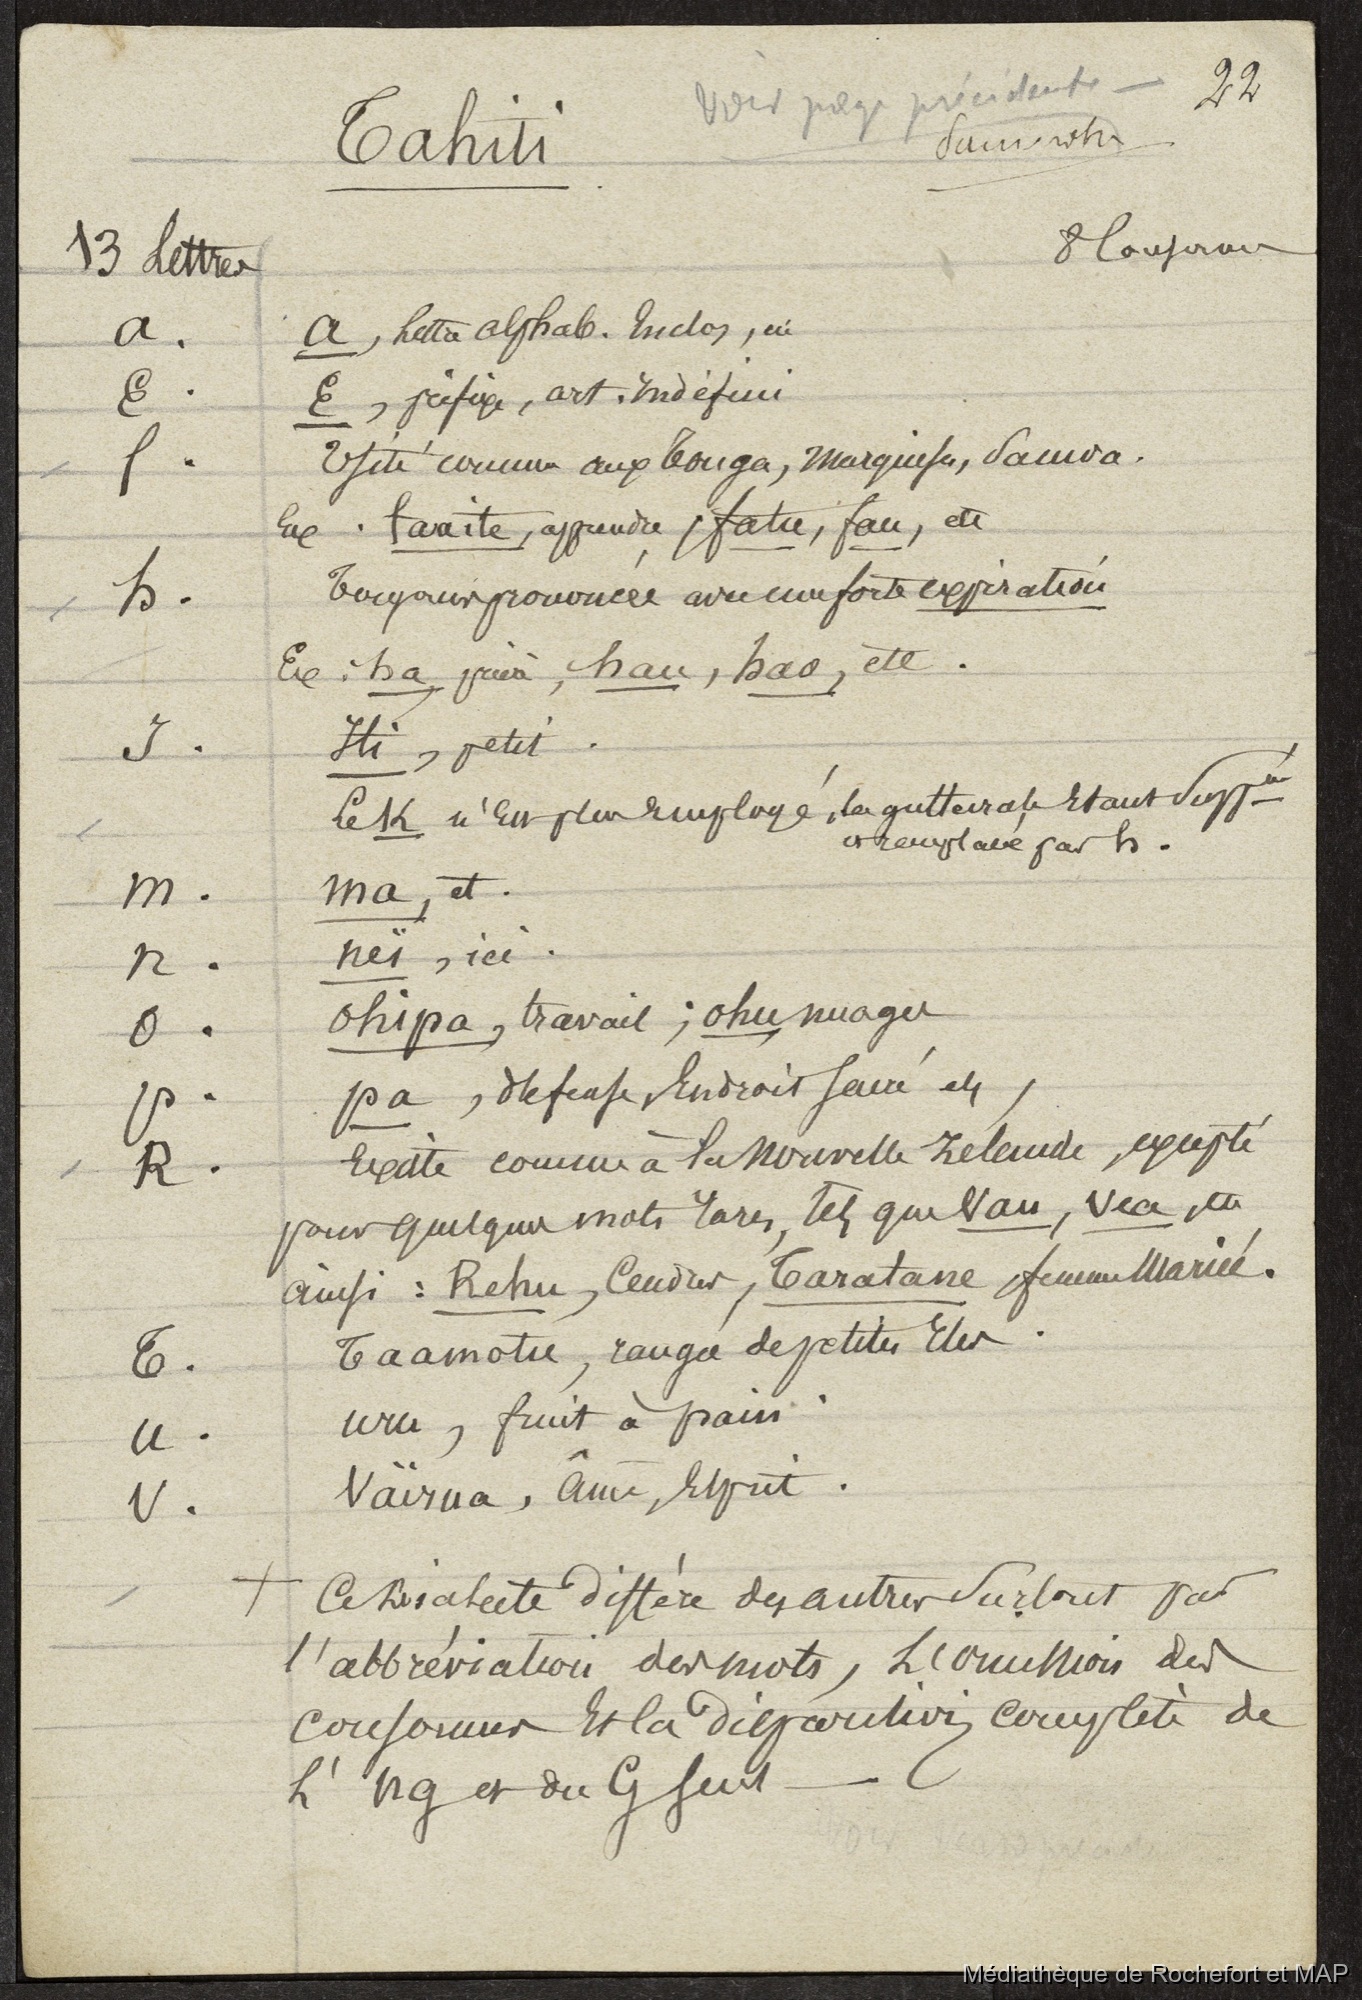 22
Voir page précédente —
Tahiti
13 Lettres
8 Consonnes
a. a, lettre alphab. Enclos, ici
E. E, préfixe, art. indéfini
f. Usité comme aux Tonga, Marquises, Samoa.
Ex. faaite, apprendre; fatu, fau, etc
h. Toujours prononcée avec une forte expiration
Ex: ha, hau, hao, etc.
I. Iti, petit.
Le K n'est plus employé, la gutturale étant supp.
et remplacé par h.
m. ma, et.
n. neï, ici.
o. ohipa, travail; ohu nuages
p. pa, défense, Endroit sacré etc,
R. Existe comme à la Nouvelle Zélande, excepté
pour quelques mots rares, tels que Vau, Vea, etc
ainsi: Rehu, Cendres, Taratane, femme Mariée.
T. Taamotu, rangée de petites Iles.
u. uru, fruit à pain
V. Väirua, âme, Esprit.
+ Ce Dialecte diffère des autres surtout par
l'abbréviation des mots, l'omission des
consonnes et la disparution complète de
L'ng et du G seul —
Médiathèque de Rochefort et MAP